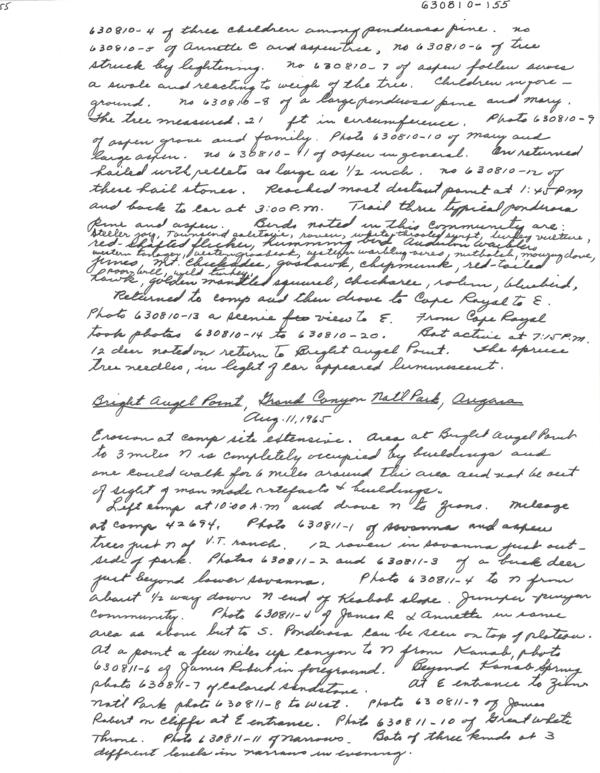 55
630810-155
630810-4 of three children among ponderosa pine. no
630810-5 of Annette C and aspen tree, no 630810-6 of tree
struck by lightening. no 630810-7 of aspen fallen across
a swale and reacting to weigh of the tree. Children in fore-
ground. no 630810-8 of a large ponderosa pine and Mary.
The tree measured 21 ft in circumference. Photo 630810-9
of aspen grove and family. Photo 630810-10 of Mary and
large aspen. no 630810-11 of aspen in general. On return
hailed with pellets as large as 1/2 inch. no 630810-12 of
these hail stones. Reached most distant point at 1:45 PM
and back to car at 3:00 P.M. Trail thru typical ponderosa
pine and aspen. Birds noted in this community are:
Steller jay, Townsend solitaire, raven, white throated swift, turkey vulture,
red-shafted flicker, humming bird, Audubon warblers
western tanager, western grosbeak, western warbling vireo, nuthatch, mourning dove,
juncos, Mt. Chickadee, goshawk, chipmunk, red-tailed
poor will, wild turkey,
hawk, golden mantled squirrel, chickaree, robin, bluebird,
Returned to camp and then drove to Cape Royal to E.
Photo 630810-13 a scenic view to E. From Cape Royal
took photos 630810-14 to 630810-20. Bat active at 7:15 P.M.
12 deer noted on return to Bright Angel Point. The spruce
tree needles, in light of car appeared luminescent.
Bright Angel Point, Grand Canyon Natl Park, Arizona
Aug. 11, 1965
Erosion at camp site extensive. Area at Bright Angel Point
to 3 miles N is completely occupied by buildings and
one could walk for 6 miles around this area and not be out
of sight of man made artefacts & buildings.
Left camp at 10:00 A.M and drove N to Zions. Mileage
at camp 42694. Photo 630811-1 of savanna and aspen
trees just N of V.T. ranch. 12 raven in savanna just out-
side of park. Photos 630811-2 and 630811-3 of a buck deer
just beyond lower savanna. Photo 630811-4 to N from
about 1/2 way down N end of Kaibab slope. Juniper pinyon
community. Photo 630811-5 of James R & Annette in same
area as above but to S. Ponderosa can be seen on top of plateau.
At a point a few miles up canyon to N from Kanab, photo
630811-6 of James Robert in foreground. Beyond Kanab Spring
photo 630811-7 of colored sandstone. At E entrance to Zion
Natl Park photo 630811-8 to west. Photo 630811-9 of James
Robert on cliffs at E entrance. Photo 630811-10 of Great White
Throne. Photo 630811-11 of narrows. Bats of three kinds at 3
different levels in narrows in evening.